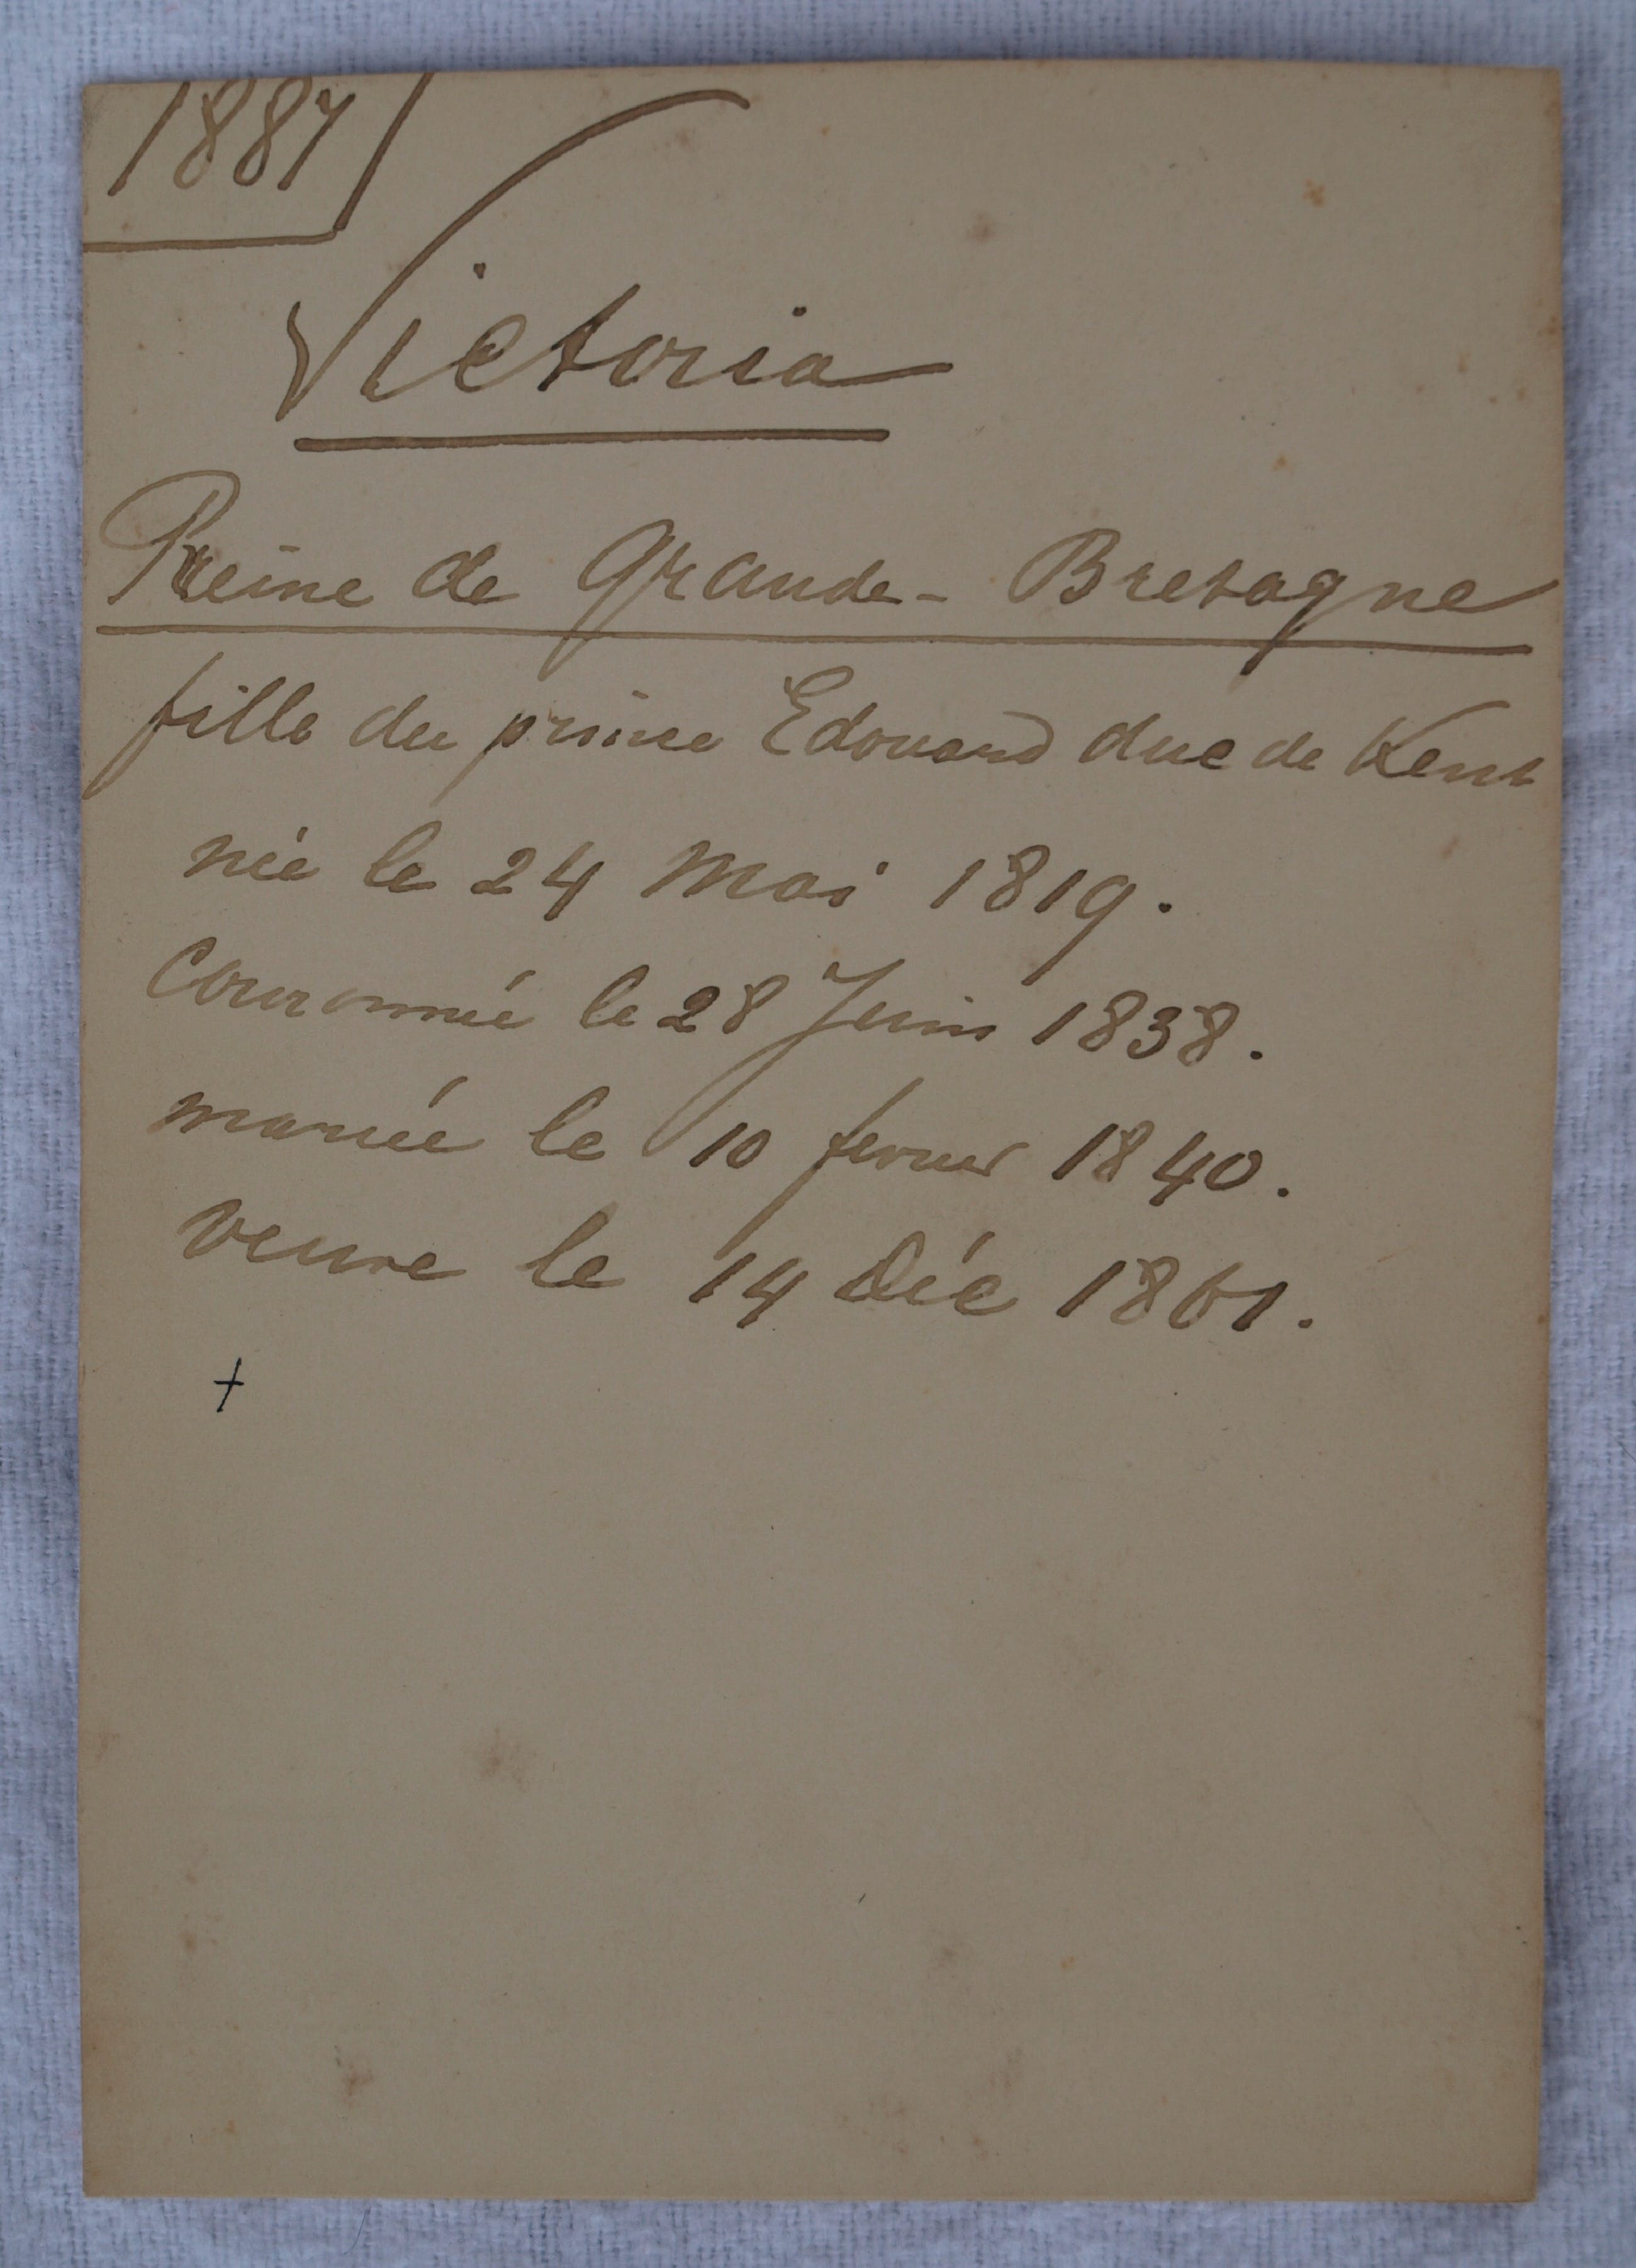 1887
Victoria
Reine de Grande-Bretagne
fille du prince Edouard duc de Kent
née le 24 Mai 1819.
Couronnée le 28 Juin 1838.
mariée le 10 fevrier 1840.
veuve le 14 Déc 1861.
+